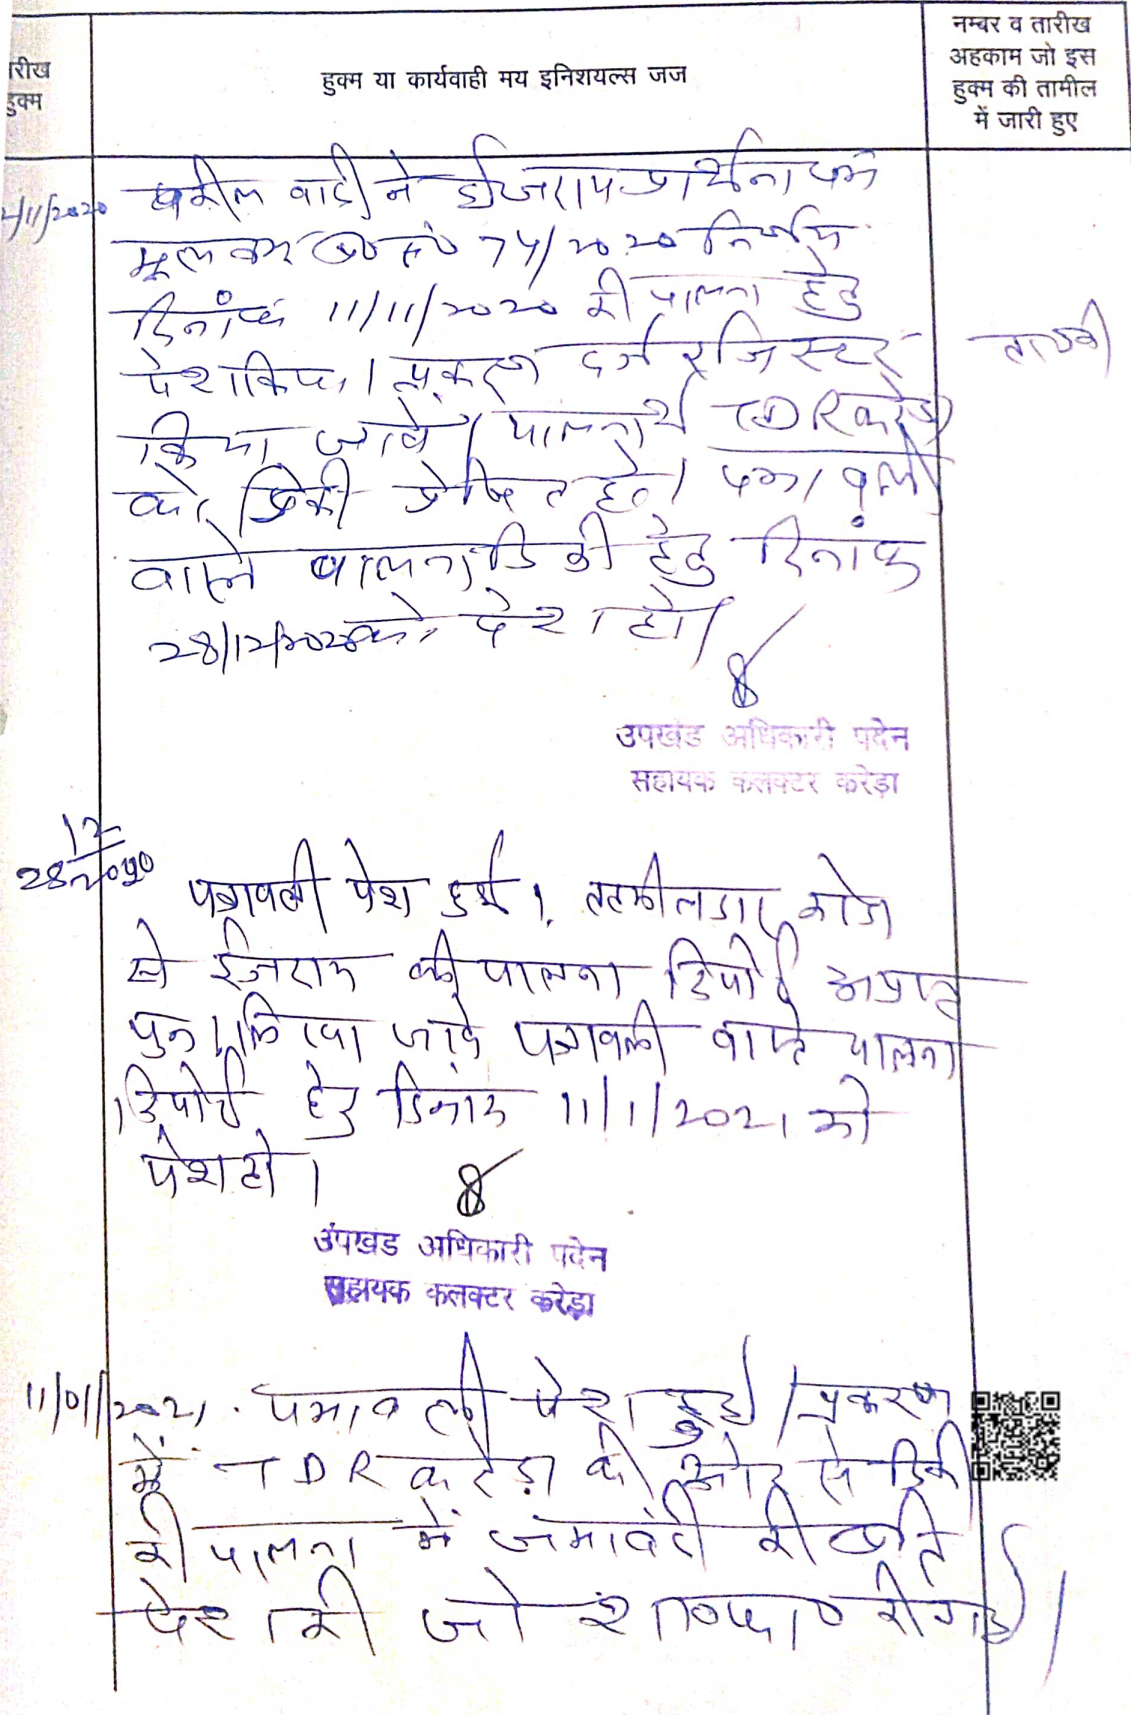 रीख
हुक्म
हुक्म या कार्यवाही मय इनिशयल्स जज
नम्बर व तारीख
अहकाम जो इस
हुक्म की तामील
में जारी हुए
/11/2020 वकील वादी ने ईजराय प्रार्थना पत्र
मूल वाद सं 74/2020 निर्णय
दिनांक 11/11/2020 की पालना हेतु
पेश किया। प्रकरण दर्ज रजिस्टर
किया जावे। पालनार्थ TDR करेड़ा
को डिक्री प्रेषित हो। पत्रावली
वास्ते पालना डिक्री हेतु दिनांक
28/12/2020 को पेश हो।
उपखंड अधिकारी पदेन
सहायक कलक्टर करेड़ा
28/12/2020
पत्रावली पेश हुई। तहसीलदार करेड़ा
से ईजराय की पालना रिपोर्ट अप्राप्त
पुनः लिखा जावे पत्रावली वास्ते पालना
रिपोर्ट हेतु दिनांक 11/1/2021 को
पेश हो।
उपखंड अधिकारी पदेन
सहायक कलक्टर करेड़ा
11/01/2021. पत्रावली पेश हुई। प्रकरण
में TDR करेड़ा की ओर से डिक्री
की पालना में जमाबंदी की प्रति
पेश की जो शा०फा० की गई।